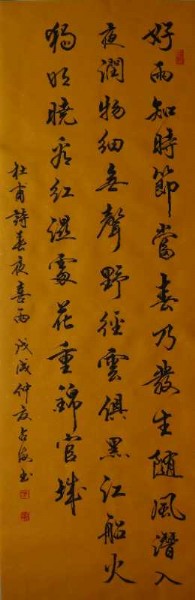 好雨知時節當春乃發生隨風潛入
夜潤物細無聲野徑雲俱黑江船火
獨明曉看紅濕處花重錦官城
杜甫詩春夜喜雨戊戌仲夏占海書